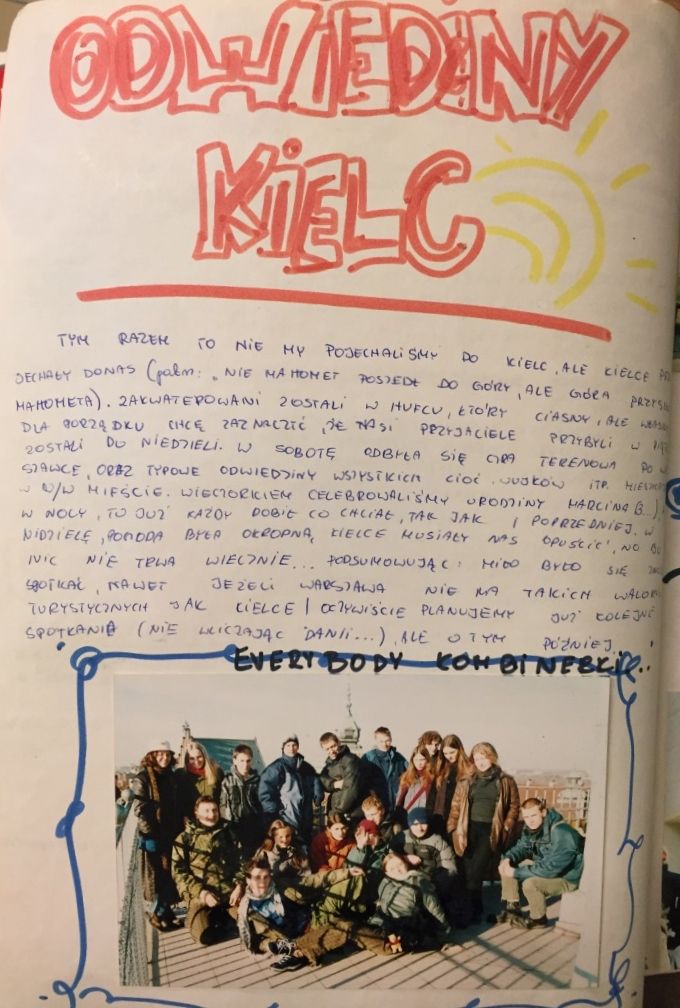 ODWIEDZINY
KIELC
TYM RAZEM TO NIE MY POJECHALIŚMY DO KIELC, ALE KIELCE
JECHAŁY DO NAS (patrz: „NIE MAHOMET POSZEDŁ DO GÓRY, ALE GÓRA
MAHOMETA). ZAKWATEROWANI ZOSTALI W HUFCU, KTÓRY CIASNY, ALE
DLA PORZĄDKU CHCĘ ZAZNACZYĆ, ŻE NASI PRZYJACIELE PRZYBYLI W
ZOSTALI DO NIEDZIELI. W SOBOTĘ ODBYŁA SIĘ GRA TERENOWA PO
SZAWCE, ORAZ TYPOWE ODWIEDZINY WSZYSTKICH CIOĆ, WUJKÓW ITP.
W W/W MIEŚCIE. WIECZORKIEM CELEBROWALIŚMY URODZINY MARCINA B...)
W NOCY, TO JUŻ KAŻDY ROBIŁ CO CHCIAŁ, TAK JAK I POPRZEDNIEJ. W
NIDZIELĘ, POGODA BYŁA OKROPNA, KIELCE MUSIAŁY NAS OPUŚCIĆ, NO BO
NIC NIE TRWA WIECZNIE... PODSUMOWUJĄC: MIŁO BYŁO SIĘ
SPOTKAĆ, NAWET JEŻELI WARSZAWA NIE MA TAKICH
TURYSTYCZNYCH JAK KIELCE I OCZYWIŚCIE PLANUJEMY JUŻ KOLEJNE
SPOTKANIA (NIE WLICZAJĄC DANII...), ALE O TYM PÓŹNIEJ...
EVERYBODY KOMBINERKI...